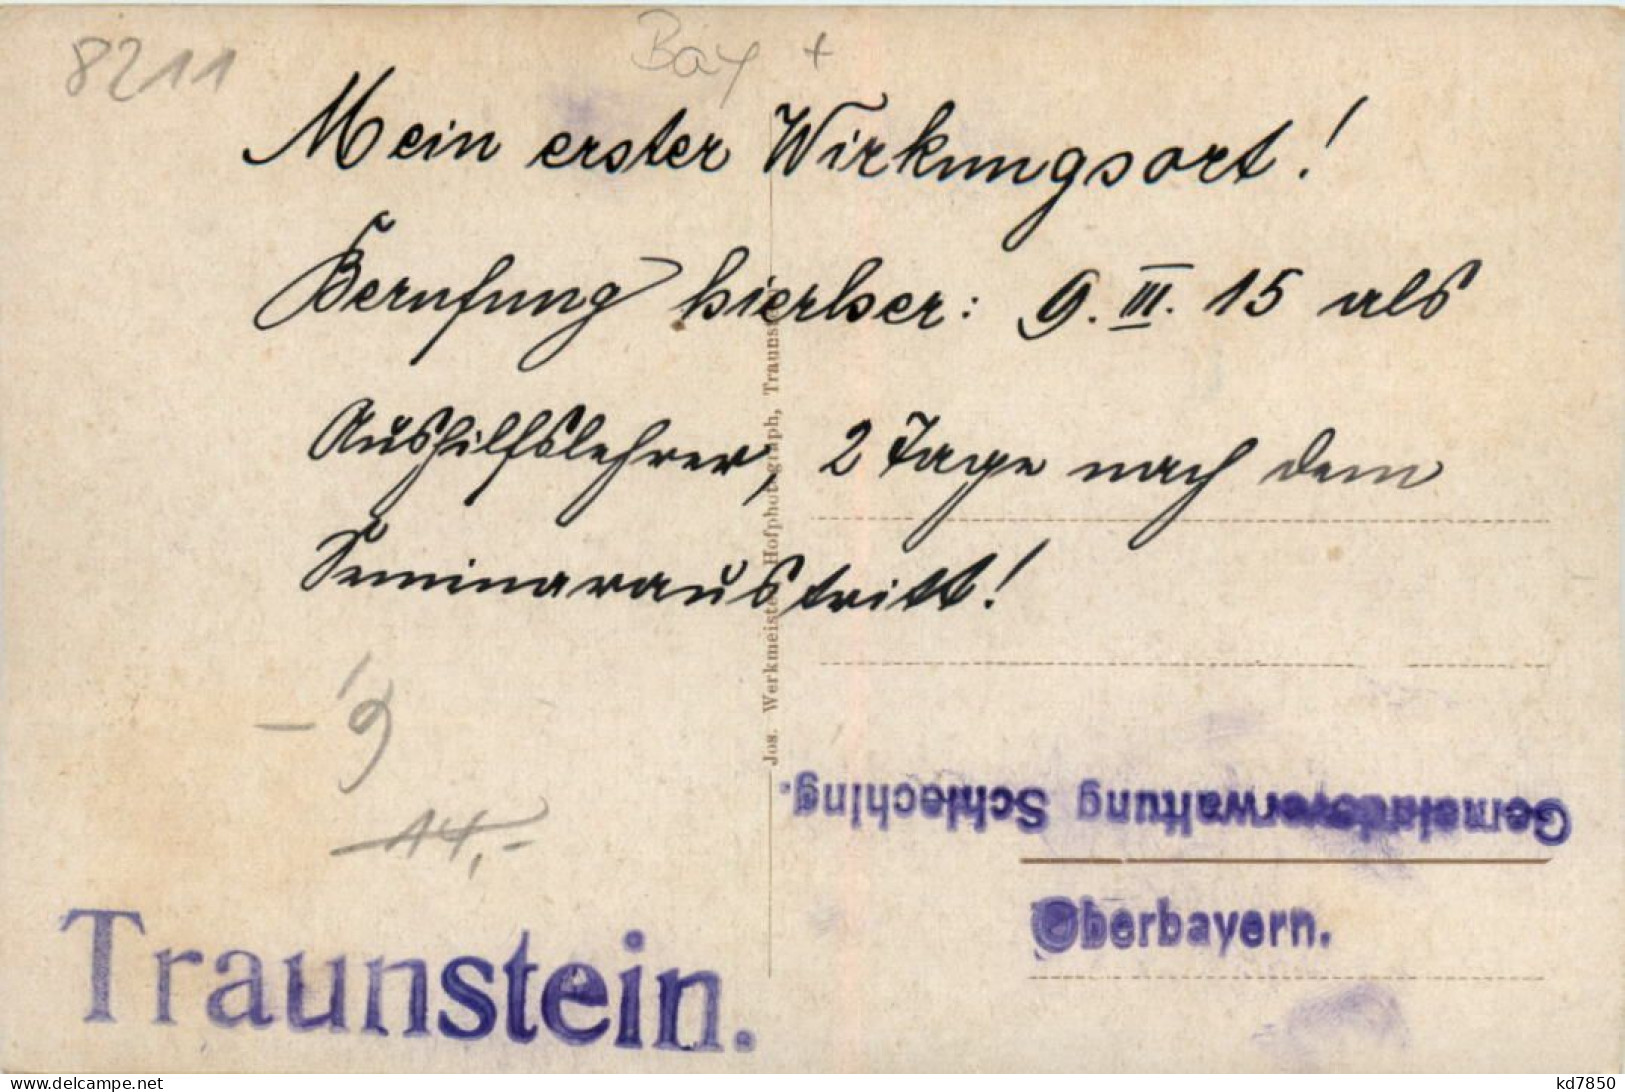 8211
Bay +
Mein erster Wirkungsort!
Berufung hierher: 9. III. 15 als
Aushilfslehrer, 2 Tage nach dem
Seminaraustritt!
Jos. Werkmeister, Hofphotograph, Traunstein
- 9
14,-
Gemeindeverwaltung Schleching.
Oberbayern.
Traunstein.
www.delcampe.net
kd7850